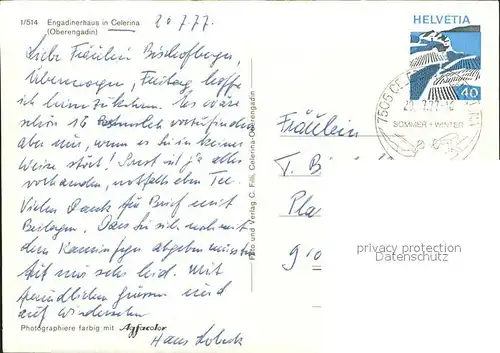 1/514 Engadinerhaus in Celerina
(Oberengadin)
20.7.77.
Liebe Fräulein Bischofberger,
übermorgen, Freitag hoffe
ich heimzukehren. Es wäre
schön 16 vorzufinden
aber nur, wenn es Sie in keiner
Weise stört! Sonst ist ja alles
vorhanden, notfalls eben Tee.
Vielen Dank für Brief mit
Beilagen. Dass Sie sich noch mit
dem Kaminfeger abgeben mussten
tut mir sehr leid. Mit
freundlichen Grüssen und
auf Wiedersehen
Hans
Photographiere farbig mit Agfacolor
Foto und Verlag C. Filli, Celerina-Oberengadin
HELVETIA
40
7505 CE
20.7.77
SOMMER + WINTER
Fräulein
T. B
Pla
910
privacy protection
Datenschutz